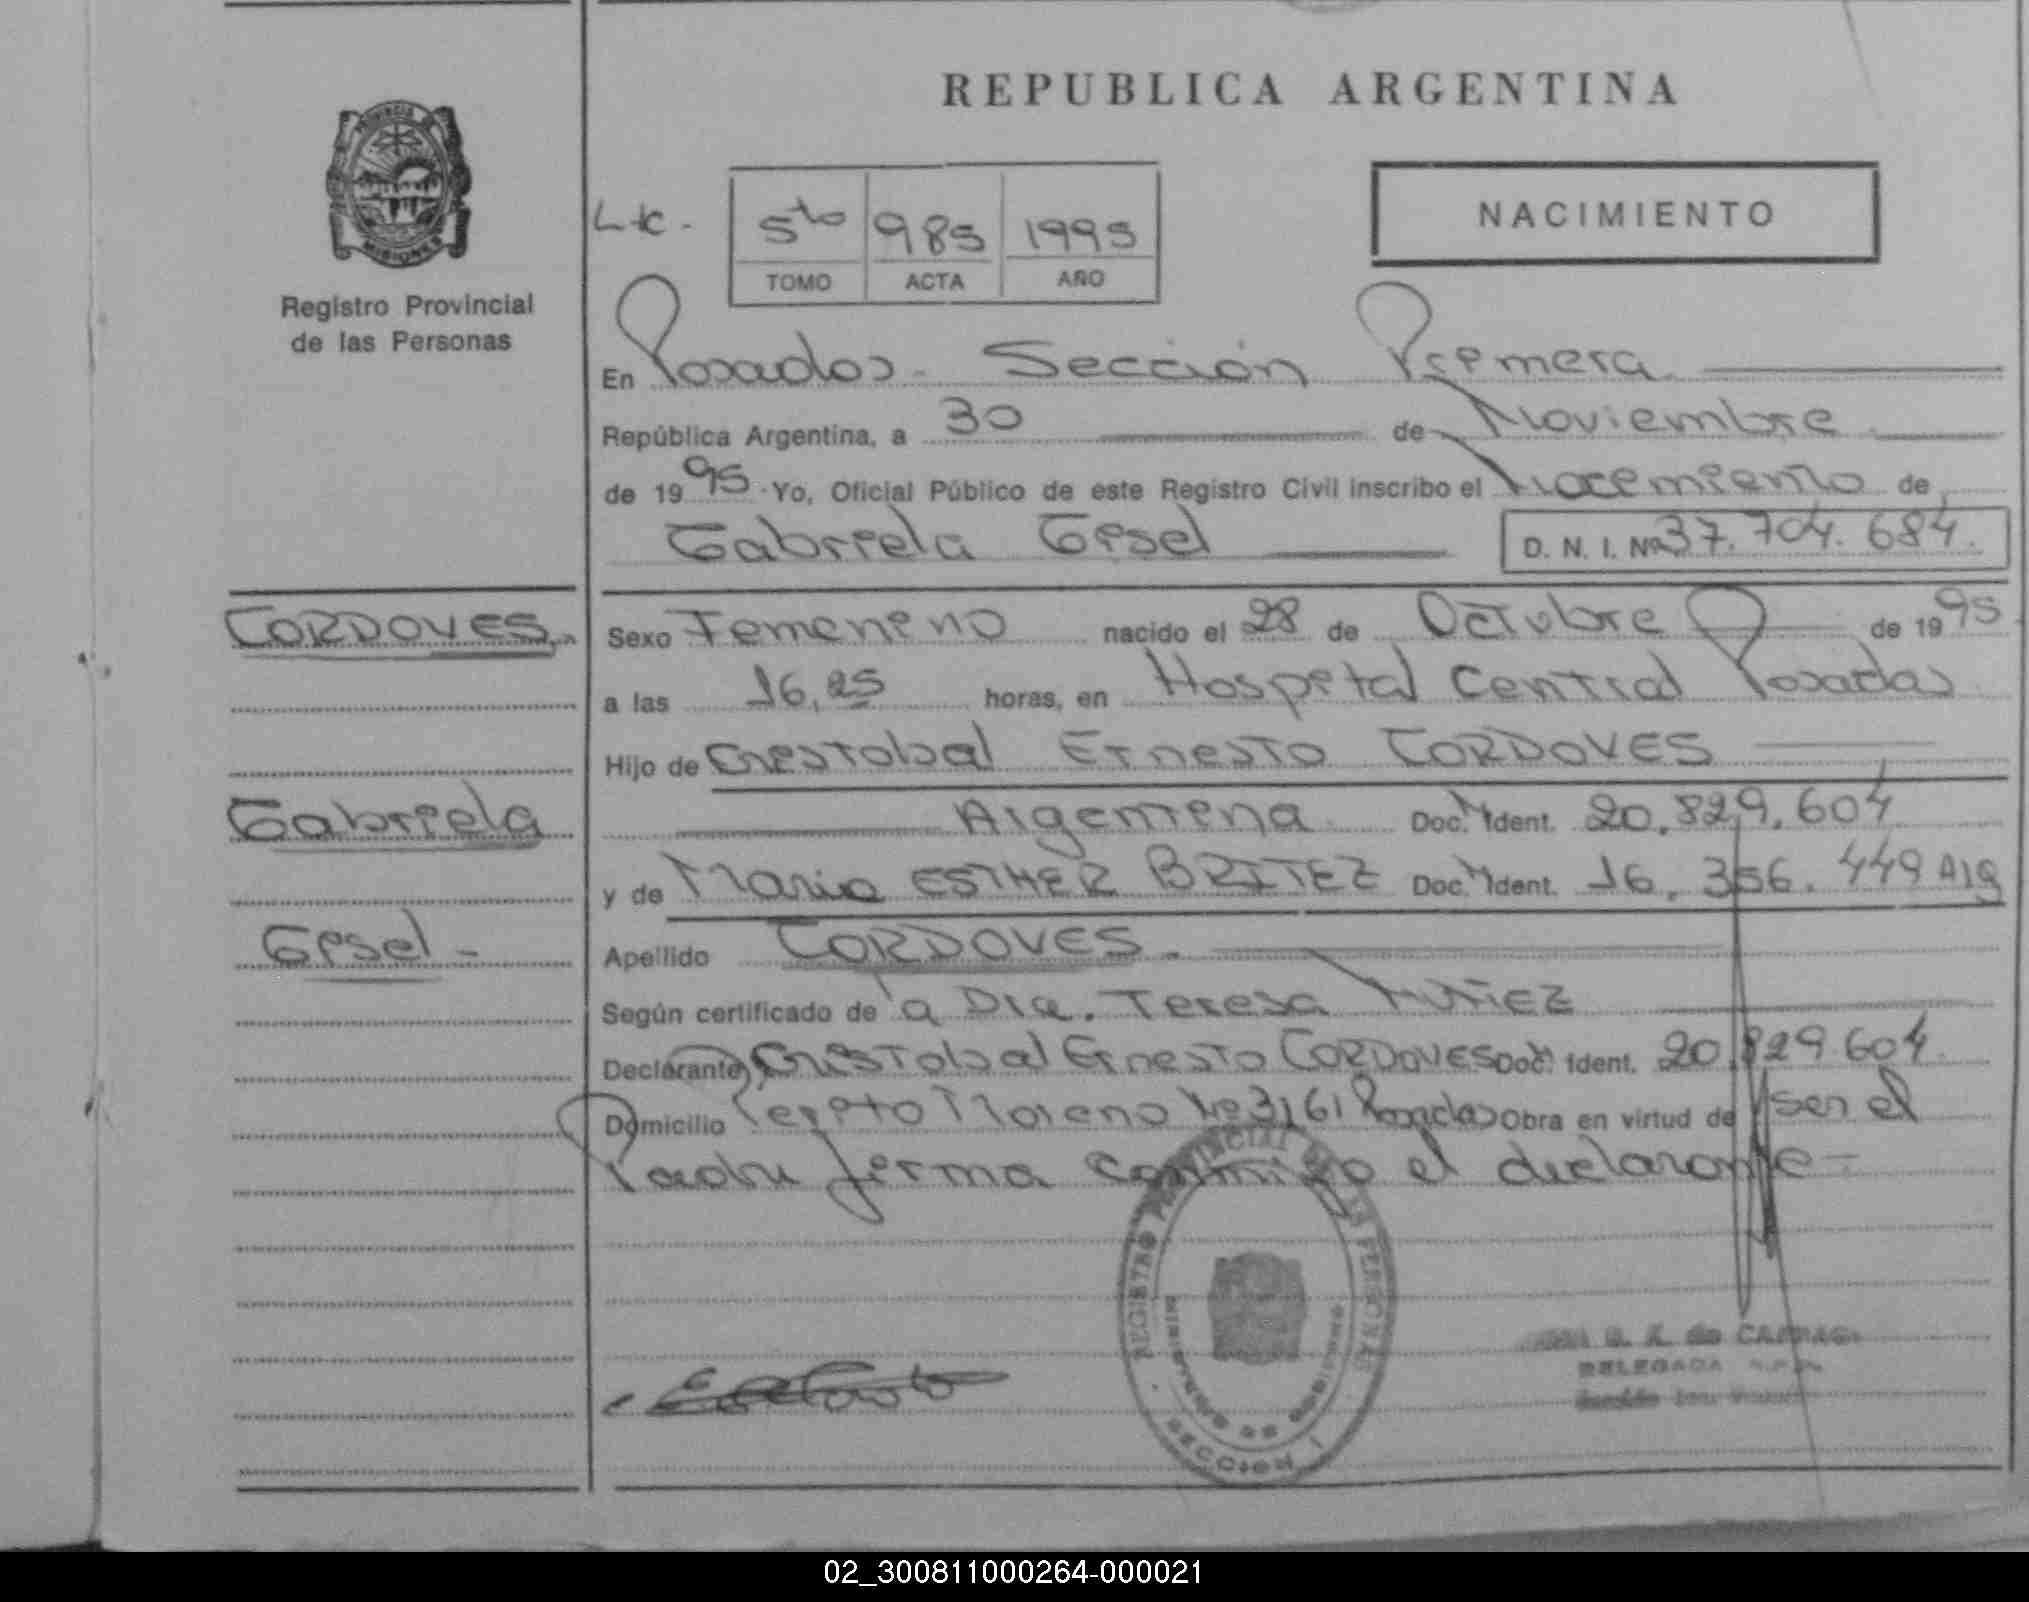 REPUBLICA ARGENTINA
PROVINCIA DE
MISIONES
Registro Provincial
de las Personas
Lic. 5to 985 1995
TOMO ACTA AÑO
NACIMIENTO
En Posadas. Sección Primera
República Argentina, a 30 de Noviembre
de 1995 Yo, Oficial Público de este Registro Civil inscribo el Nacimiento de
Gabriela Gisel D. N. I. Nº 37.704.684.
CORDOVES
Sexo Femenino nacido el 28 de Octubre de 1995
a las 16,25 horas, en Hospital Central Posadas
Hijo de Cristobal Ernesto CORDOVES
Gabriela
Argentina Doc. Ident. 20.829.604
y de Maria ESTHER BRITEZ Doc. Ident. 16.356.449 Arg
Gisel -
Apellido CORDOVES.
Según certificado de la Dra. Teresa NUÑEZ
Declarante Cristobal Ernesto CORDOVES Doc. Ident. 20.829.604
Domicilio Perito Moreno Nº 3161 Posadas Obra en virtud de ser el
Padre firma conmigo el declarante -
REGISTRO PROVINCIAL DE LAS PERSONAS
SECCION I
DELEGADA
02_300811000264-000021